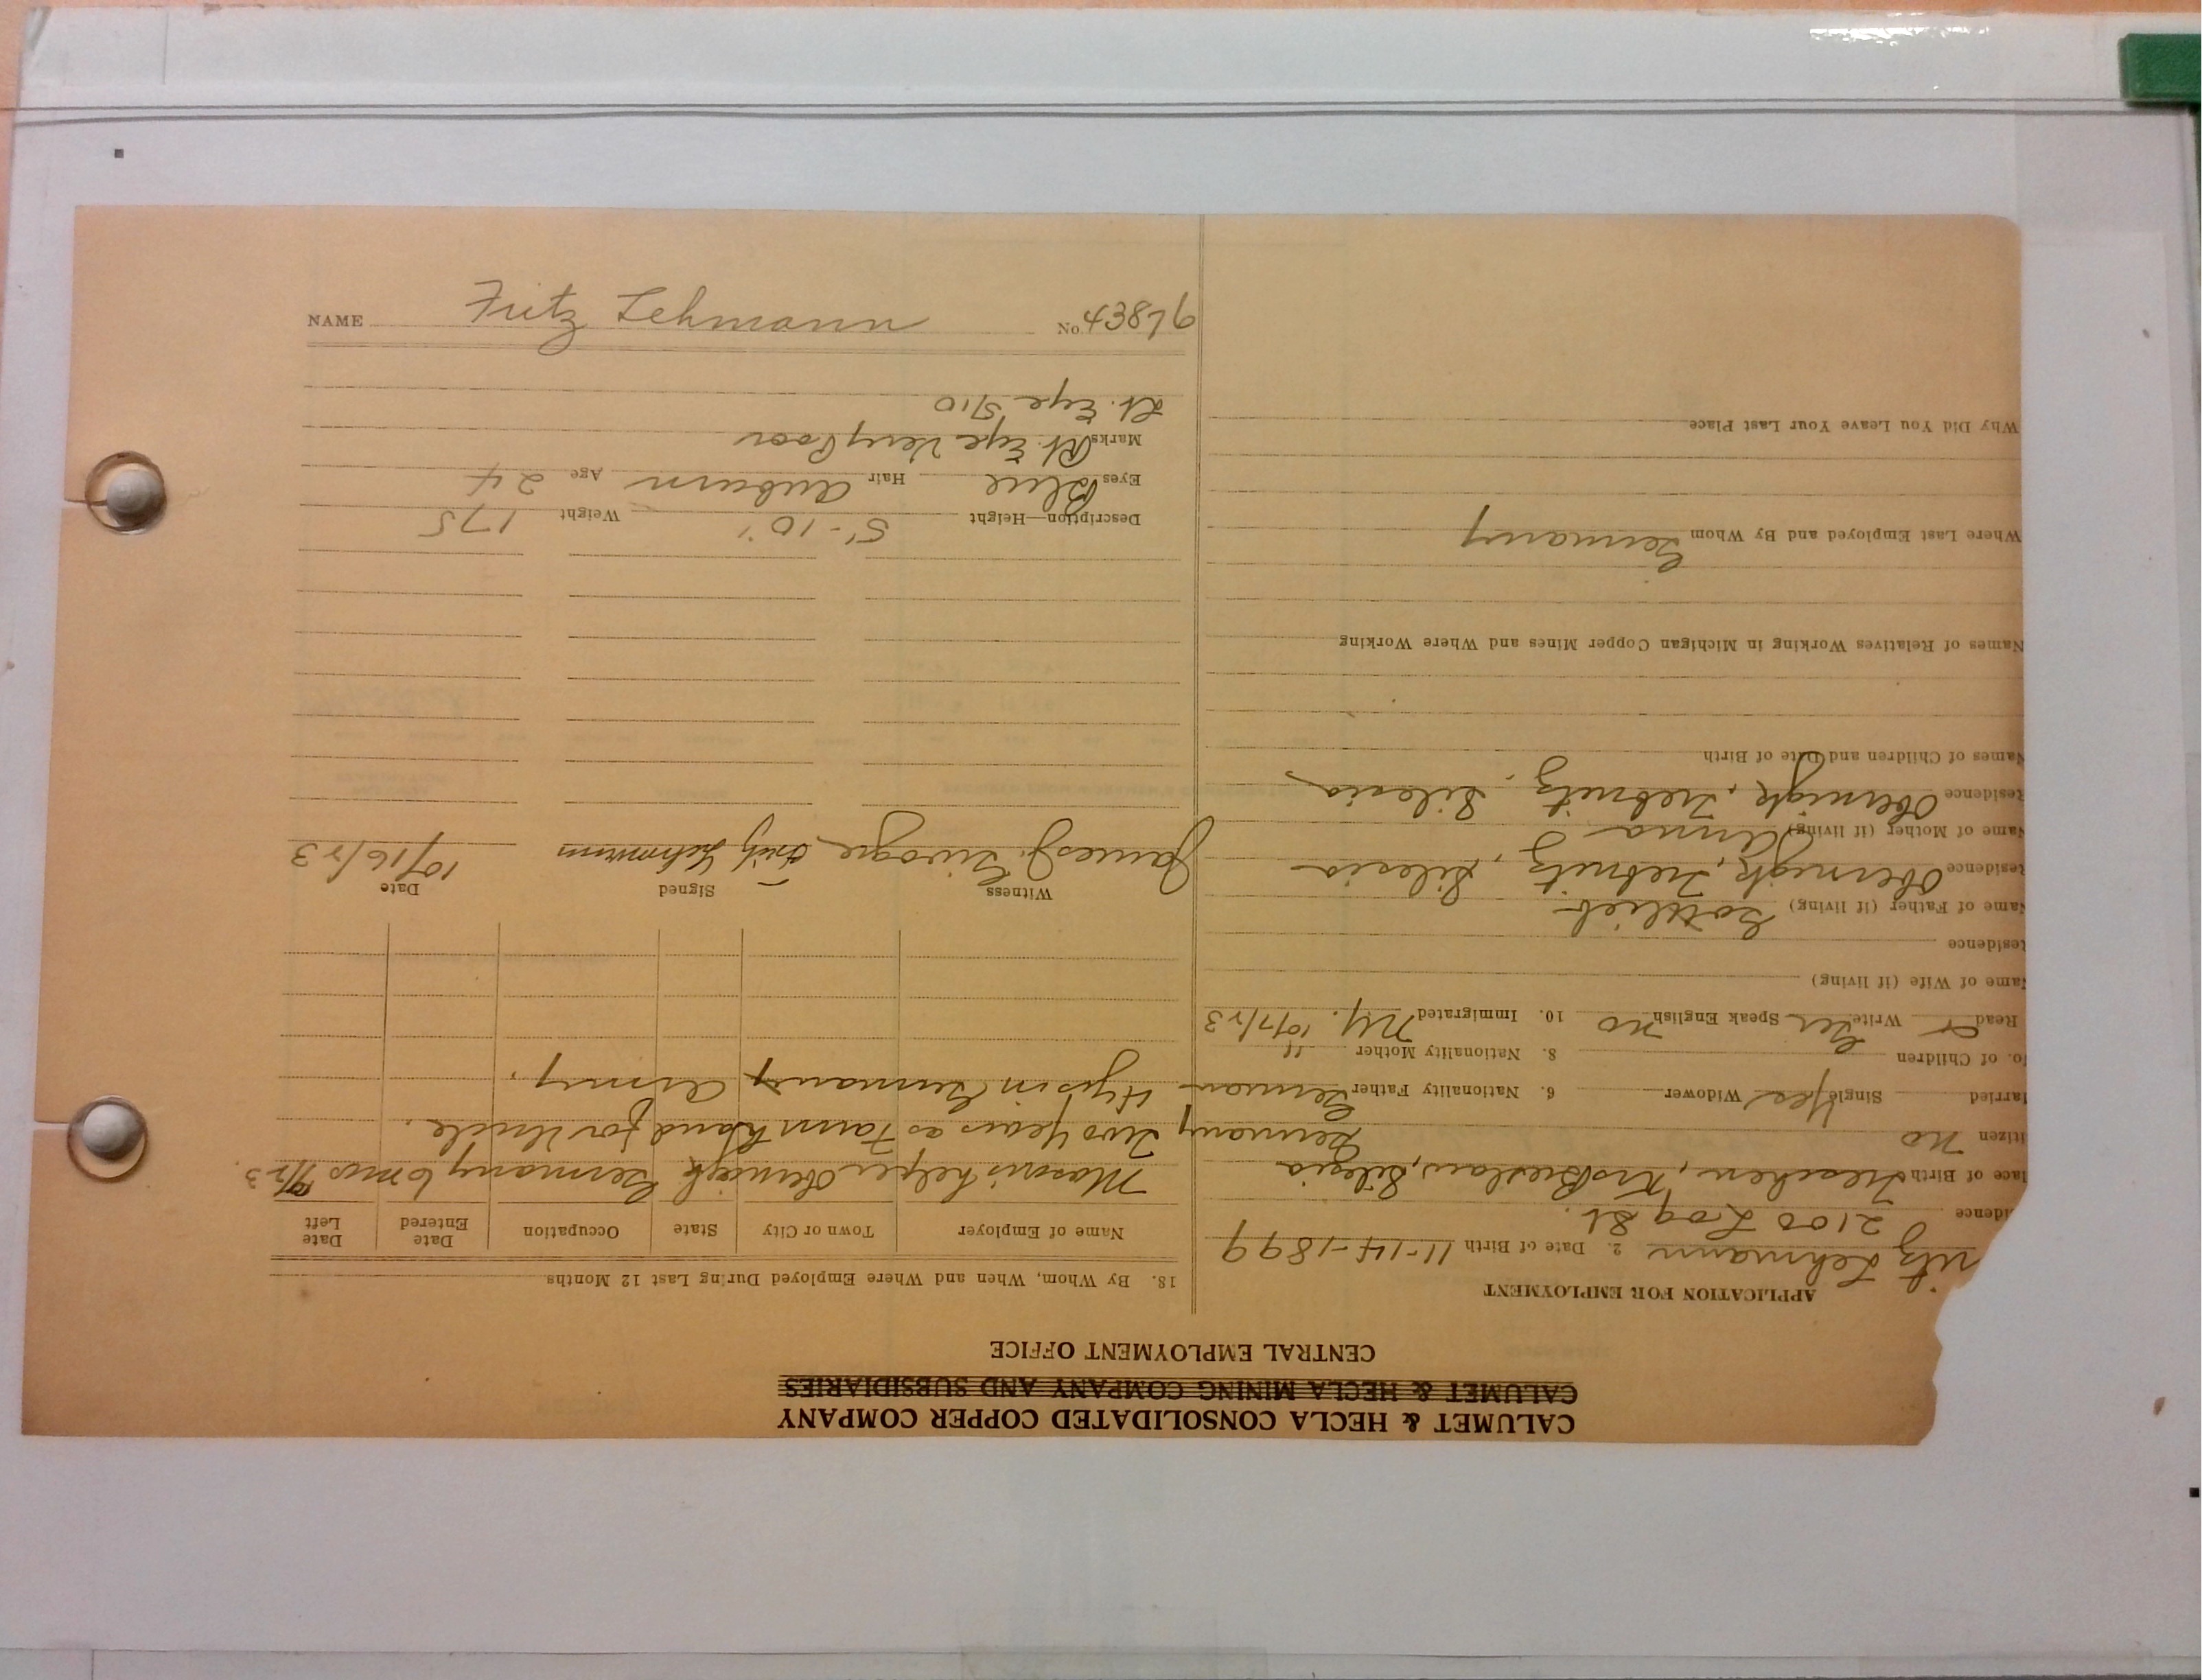 CALUMET & HECLA CONSOLIDATED COPPER COMPANY
CALUMET & HECLA MINING COMPANY AND SUBSIDIARIES
CENTRAL EMPLOYMENT OFFICE
APPLICATION FOR EMPLOYMENT
ritz Lehmann 2. Date of Birth 11-14-1899
idence 2100 Log St.
lace of Birth Krs Breslau, Silesia
itizen no Germany
arried Single Yes Widower 6. Nationality Father German
o. of Children 8. Nationality Mother "
Read Write Ger Speak English no 10. Immigrated N.Y. 10/7/23
Name of Wife (if living)
Residence
Name of Father (if living) Gottlieb
Residence Obernigk, Trebnitz, Silesia
Name of Mother (if living) Anna
Residence Obernigk, Trebnitz, Silesia
Names of Children and Date of Birth
Names of Relatives Working in Michigan Copper Mines and Where Working
Where Last Employed and By Whom Germany
Why Did You Leave Your Last Place
18. By Whom, When and Where Employed During Last 12 Months
Name of Employer Town or City State Occupation Date Entered Date Left
Mason's helper Obernigk Germany 6 mos 9/23.
Two years as Farm hand for Uncle.
4 yrs in Germany Army.
Witness Signed Date
James J. Fritz Lehmann 10/16/23
Description—Height 5'-10" Weight 175
Eyes Blue Hair auburn Age 24
Marks Rt. Eye Very Poor
Lt. Eye 5/10
NAME Fritz Lehmann No. 43876